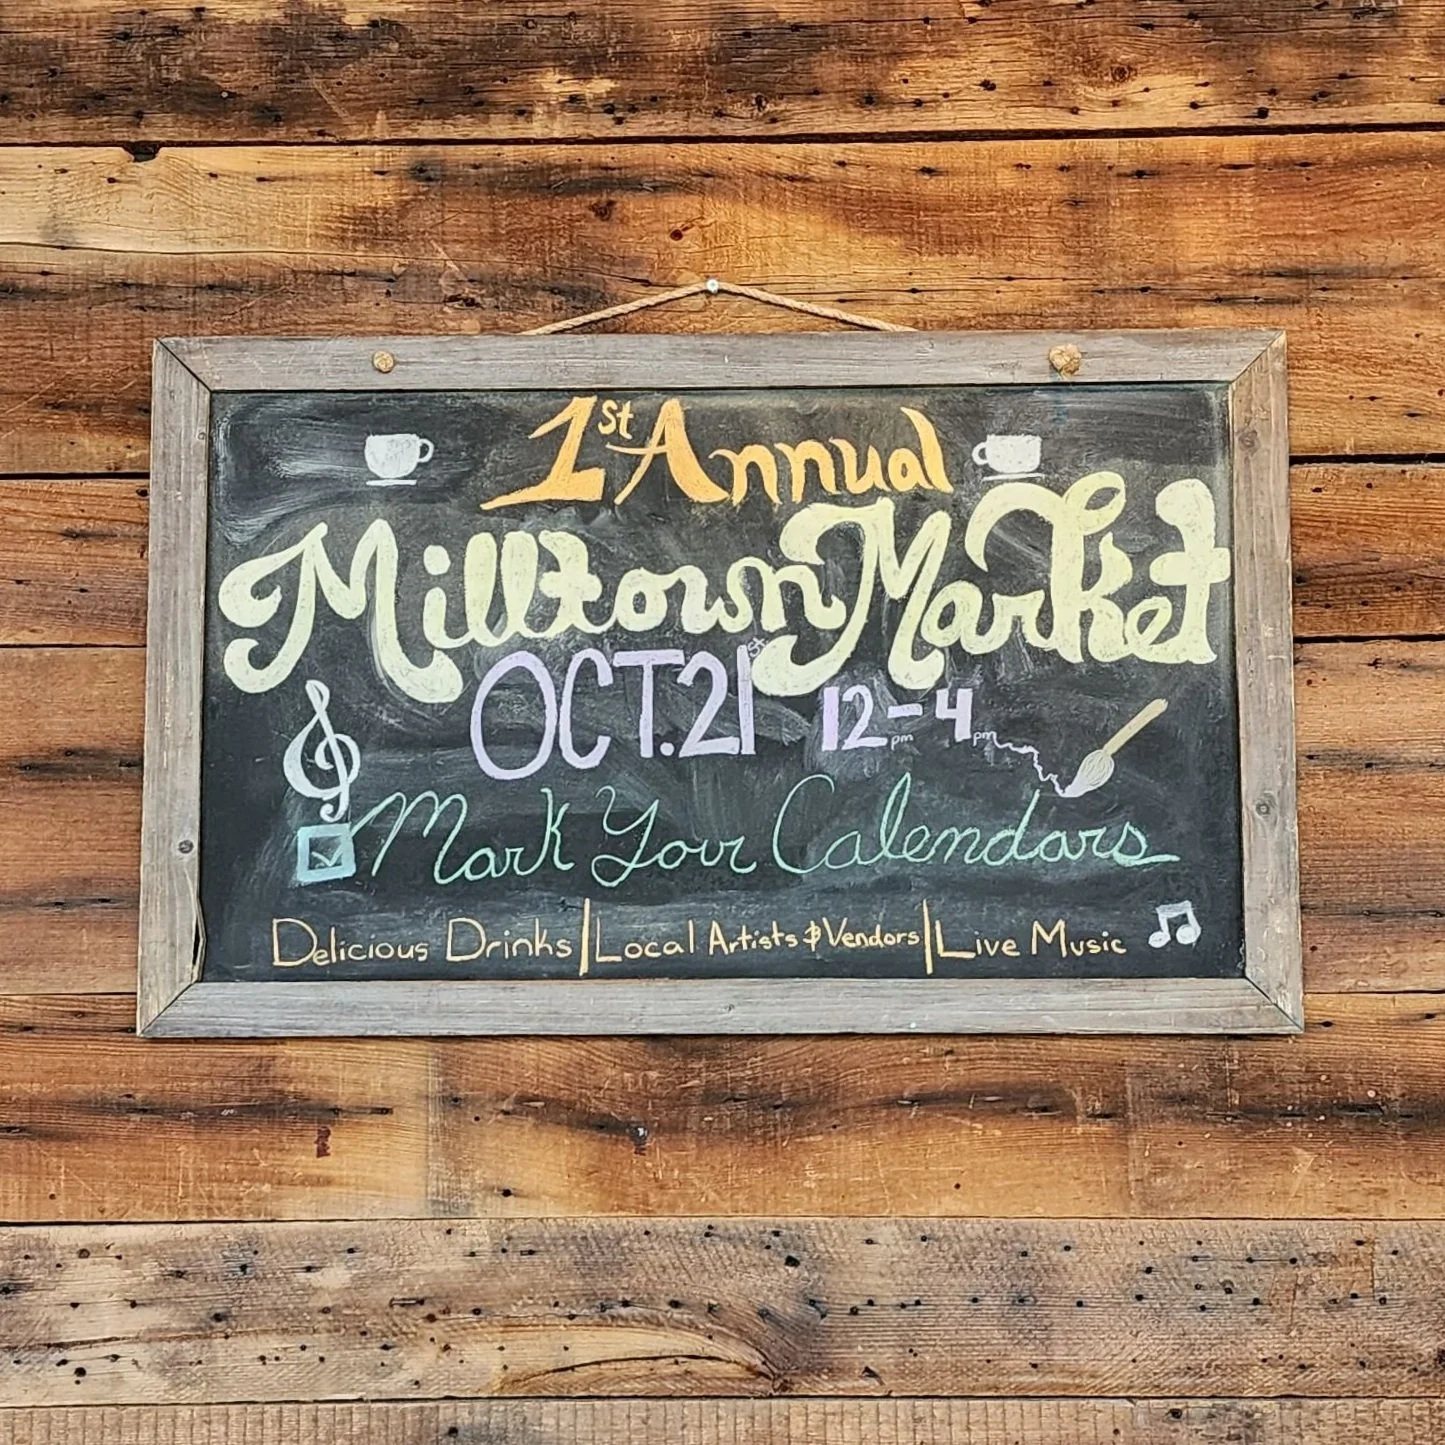 1st Annual
Milltown Market
OCT.21st 12pm-4pm
Mark Your Calendars
Delicious Drinks|Local Artists & Vendors|Live Music